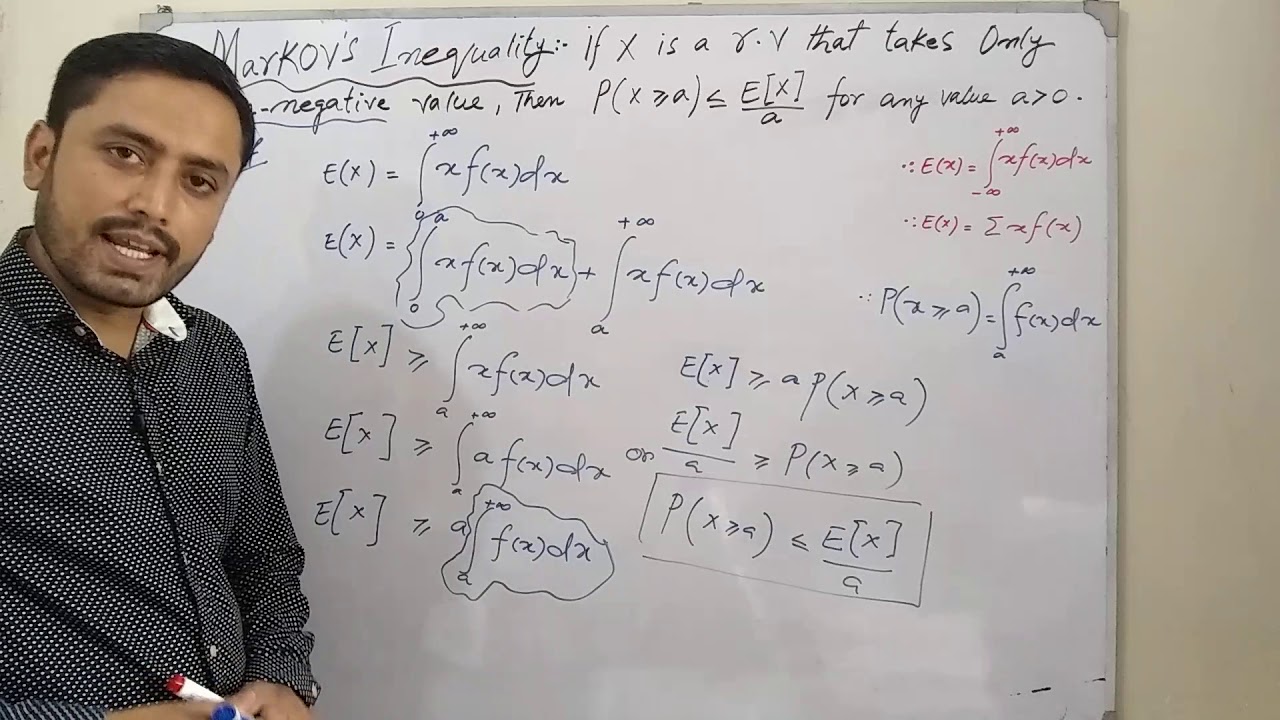 MarKOV's Inequality:- if X is a r.v that takes Only
-negative value, Then P(X ≥ a) ≤ E[X]/a for any value a>0.
E(X) = ∫₀^{+∞} x f(x) dx
E(X) = {∫₀^a x f(x) dx} + ∫ₐ^{+∞} x f(x) dx
E[X] ≥ ∫ₐ^{+∞} x f(x) dx
E[X] ≥ ∫ₐ^{+∞} a f(x) dx
E[X] ≥ a ∫ₐ^{+∞} f(x) dx
E[X] ≥ a P(X ≥ a)
or E[X]/a ≥ P(X ≥ a)
P(X ≥ a) ≤ E[X]/a
∵ E(X) = ∫_{-∞}^{+∞} x f(x) dx
∵ E(X) = Σ x f(x)
∵ P(x ≥ a) = ∫ₐ^{+∞} f(x) dx